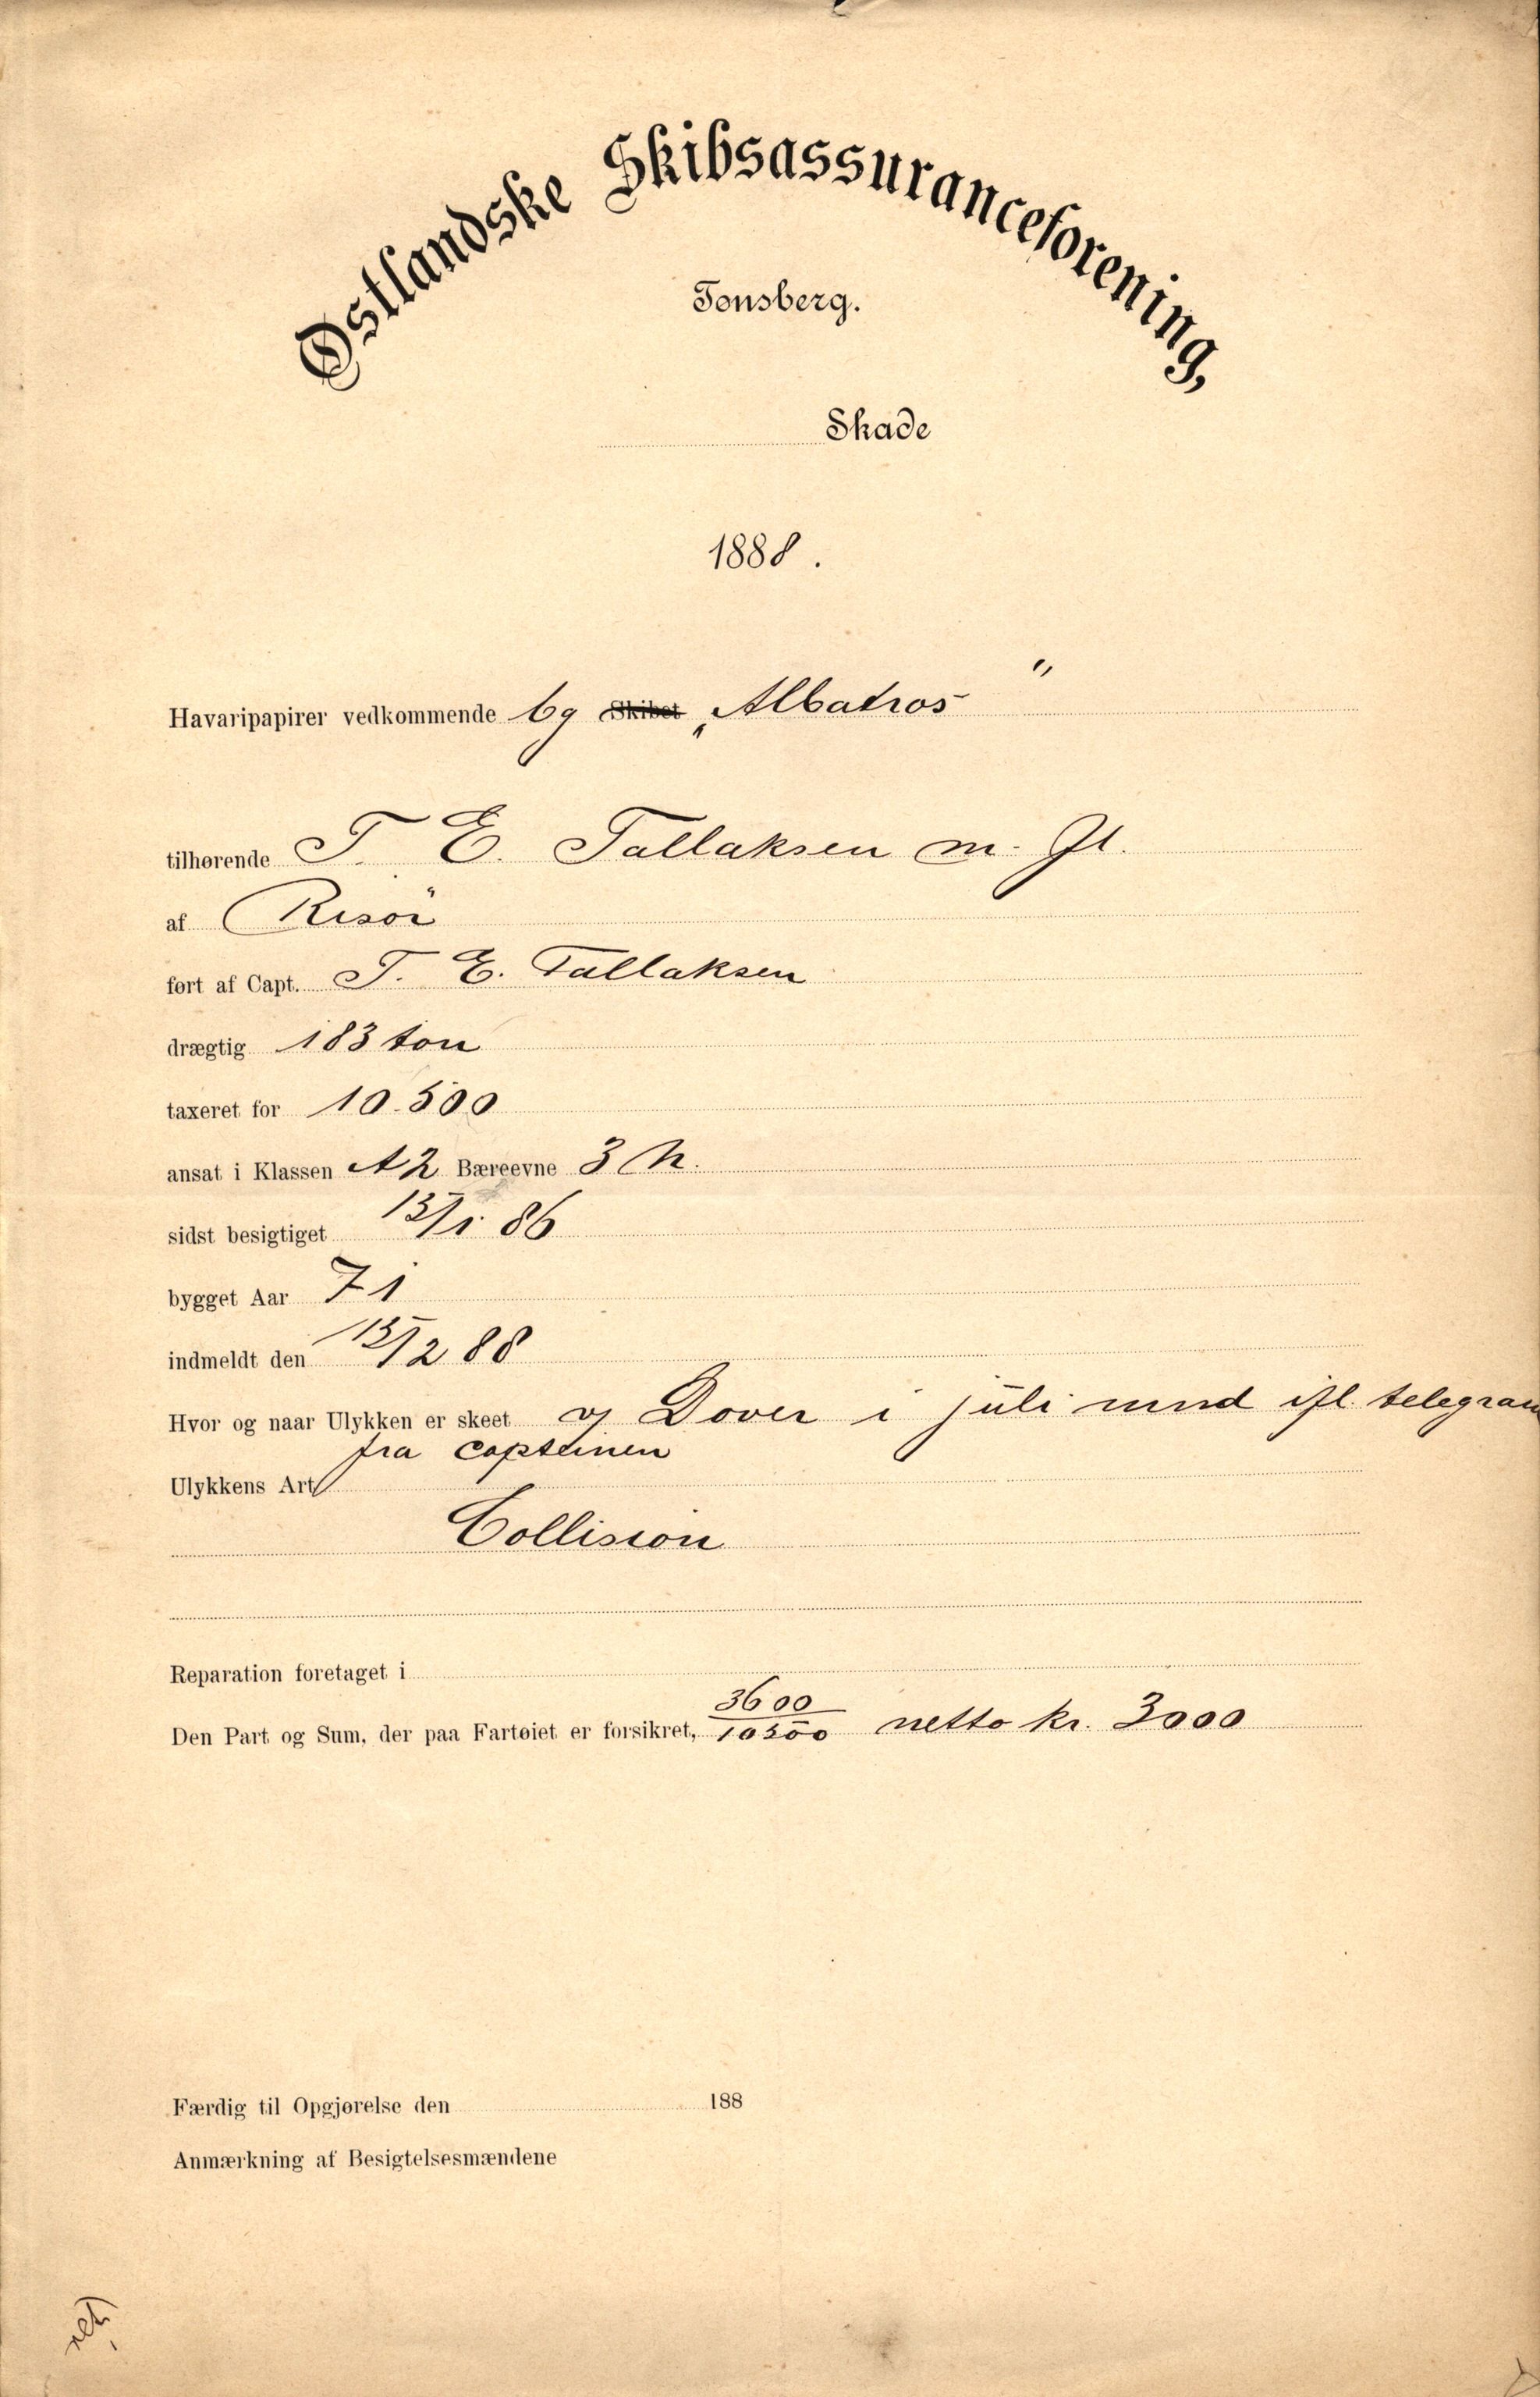 Østlandske Skibsassuranceforening,
Tønsberg.
Skade
1888.
Havaripapirer vedkommende bg Skibet „Albatros"
tilhørende T. E. Tallaksen m. Fl.
af Risör
ført af Capt. T. E. Tallaksen
drægtig 183 ton
taxeret for 10.500
ansat i Klassen A2 Bæreevne 3 M.
sidst besigtiget 13/1 86
bygget Aar 71
indmeldt den 13/2 88
Hvor og naar Ulykken er skeet v/ Dover i juli mnd ifl. telegram
fra capteinen
Ulykkens Art
Collision
Reparation foretaget i
Den Part og Sum, der paa Fartøiet er forsikret, 3600/10500 netto kr. 3000
Færdig til Opgjørelse den 188
Anmærkning af Besigtelsesmændene